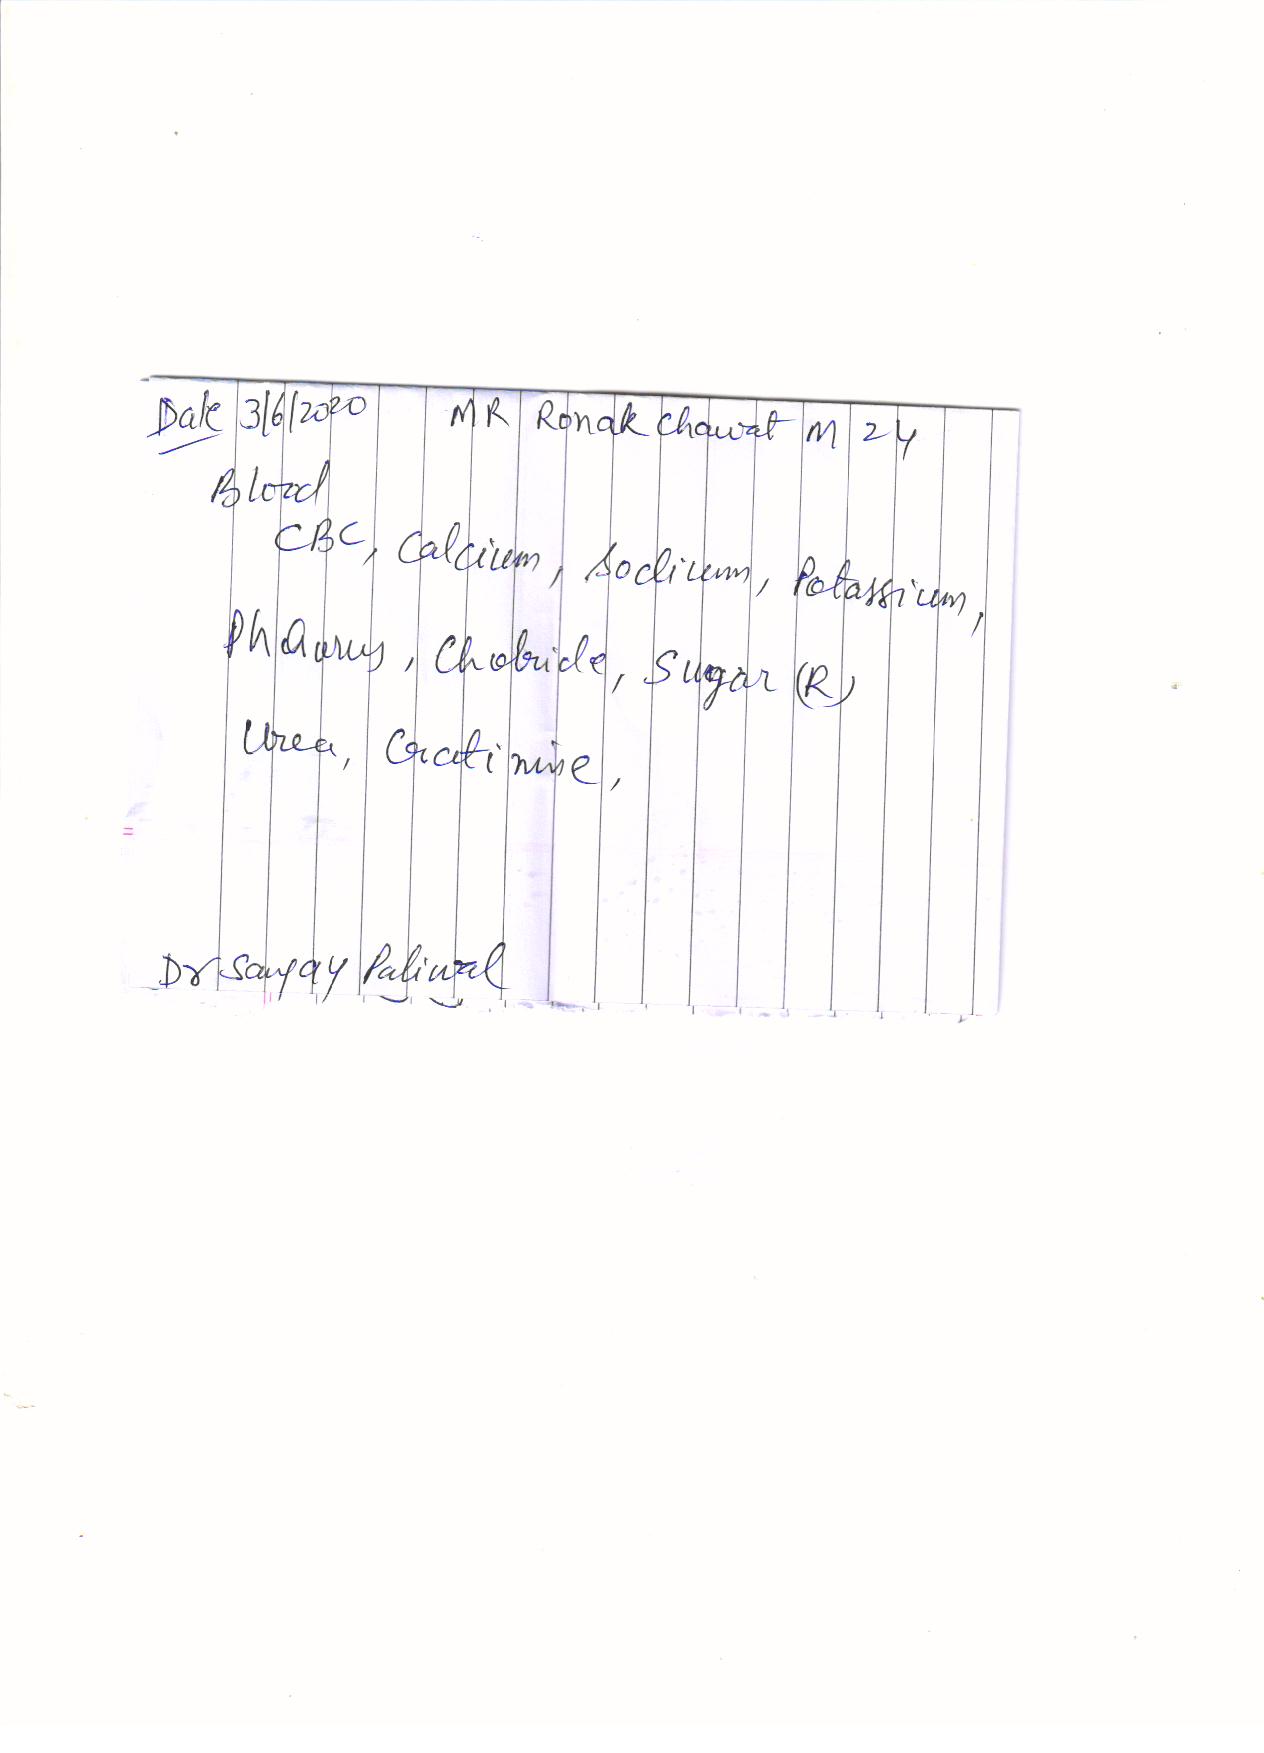 Date 3/6/2020 MR Ronak Chawat M 24
Blood
CBC, Calcium, Sodium, Potassium,
Chloride, Sugar (R)
Urea, Cratinine,
Dr Sanjay Paliwal